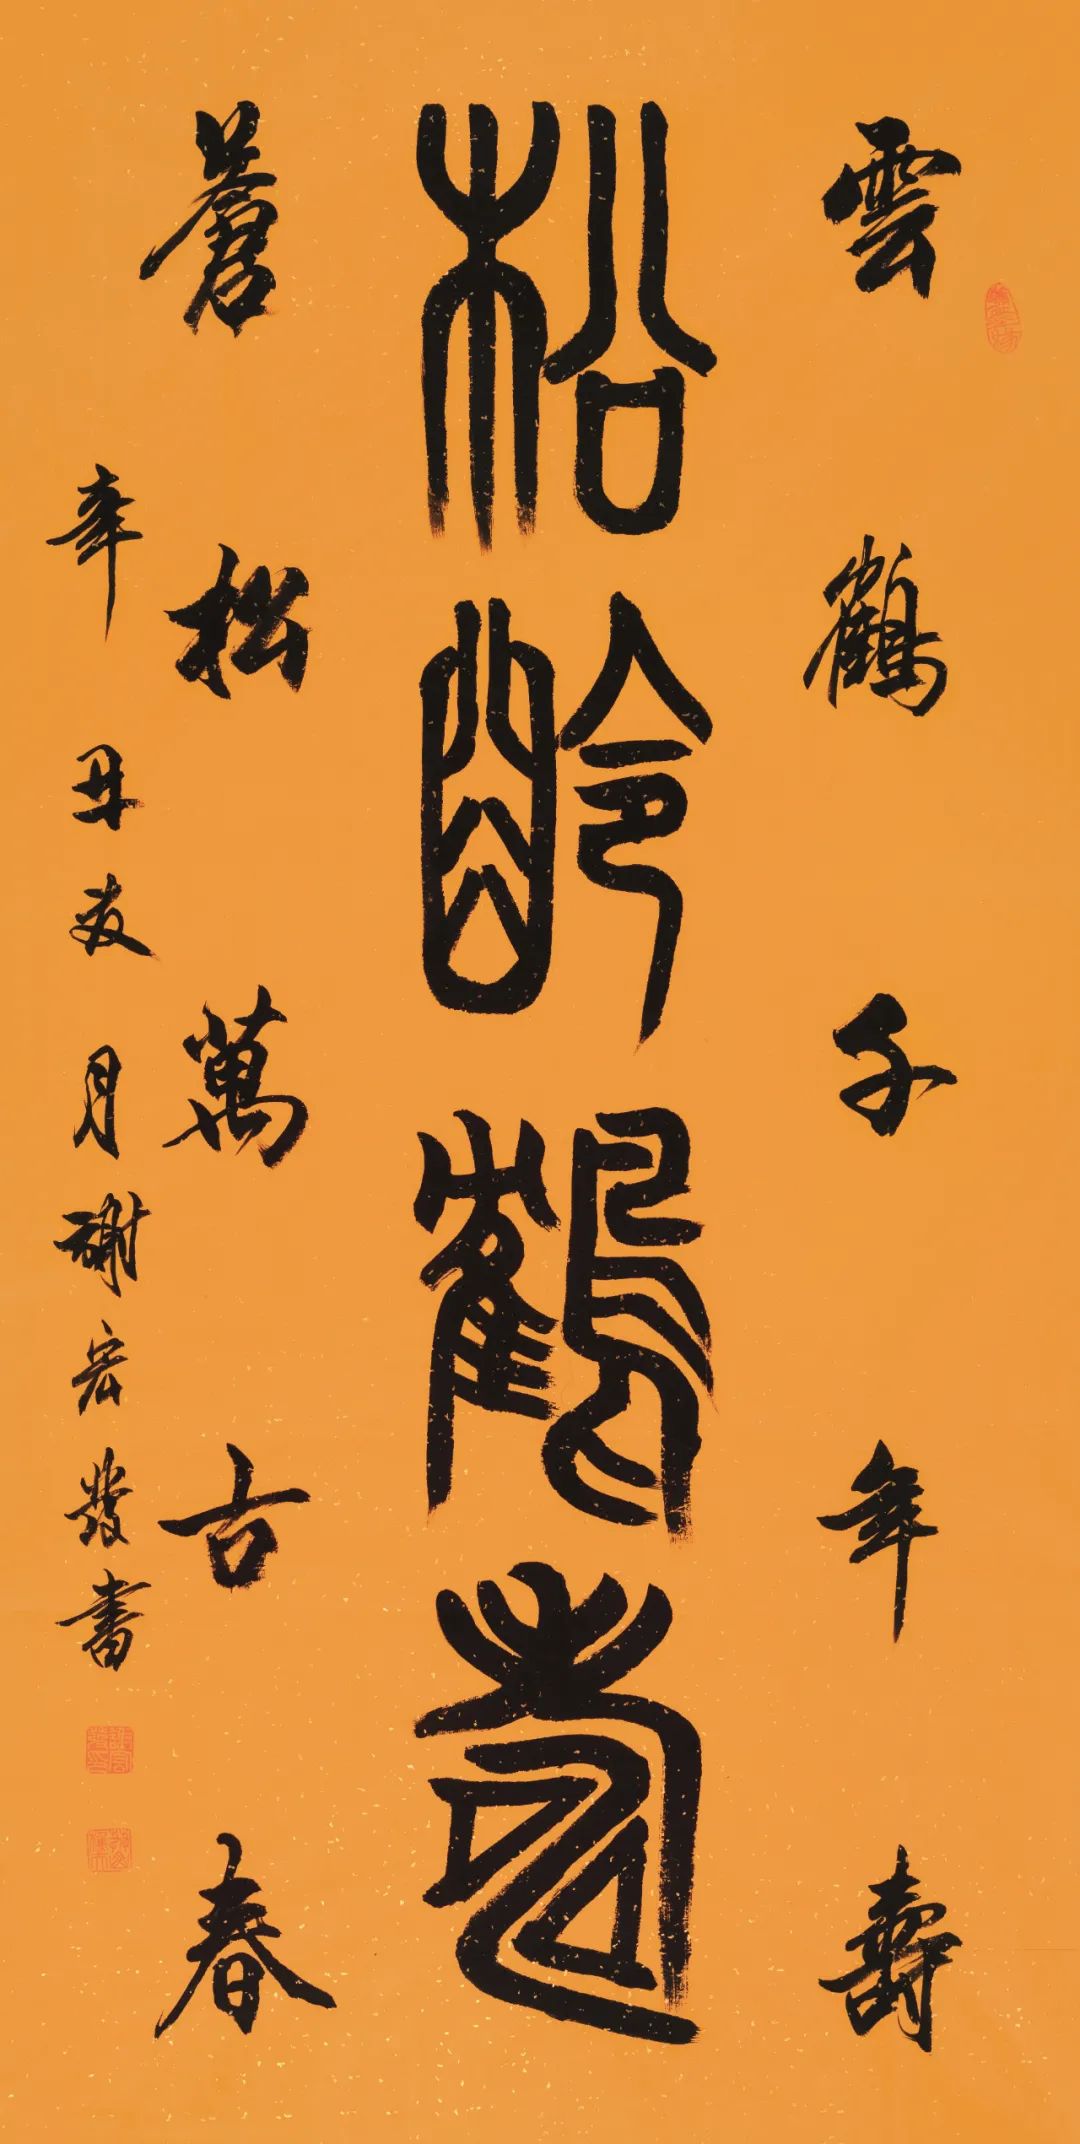 雲鶴千年壽
松齡鶴壽
蒼松萬古春
辛丑夏月謝宏發書